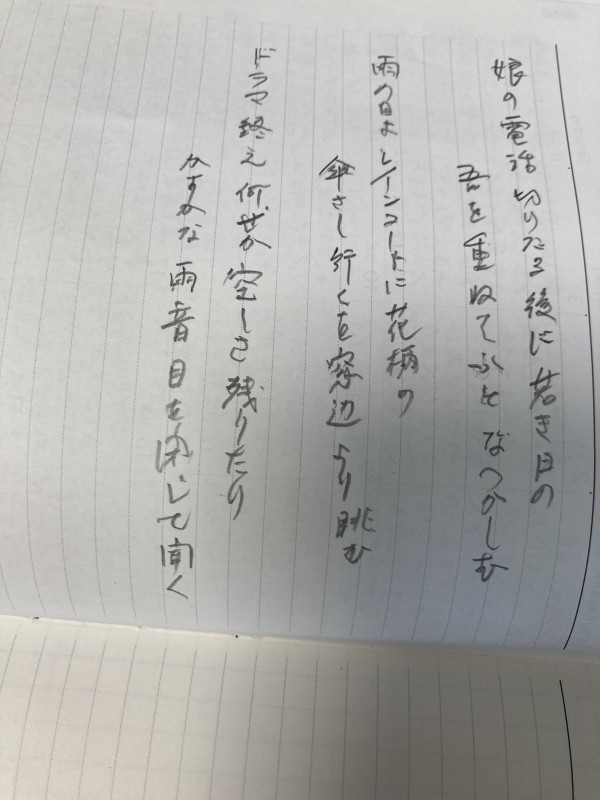 娘の電話切りたる後に若き日の
吾を重ねてふとなつかしむ
雨の日はレインコートに花柄の
傘さし行くを窓辺より眺む
ドラマ終え何ぜか空しさ残りたり
かすかな雨音目を閉じて聞く